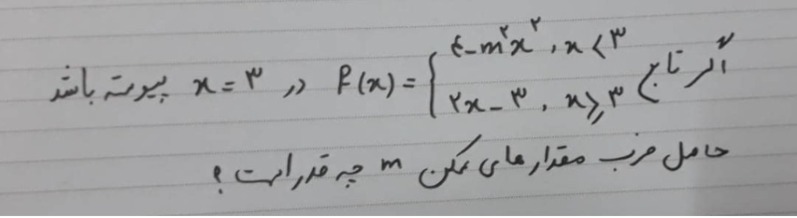 اگر تابع f(x) = { ۴-m²x² , x < ۳
۲x-۳ , x ⩾ ۳ در x = ۳ پیوسته باشد
حاصل ضرب مقدارهای ممکن m چه قدر است ؟